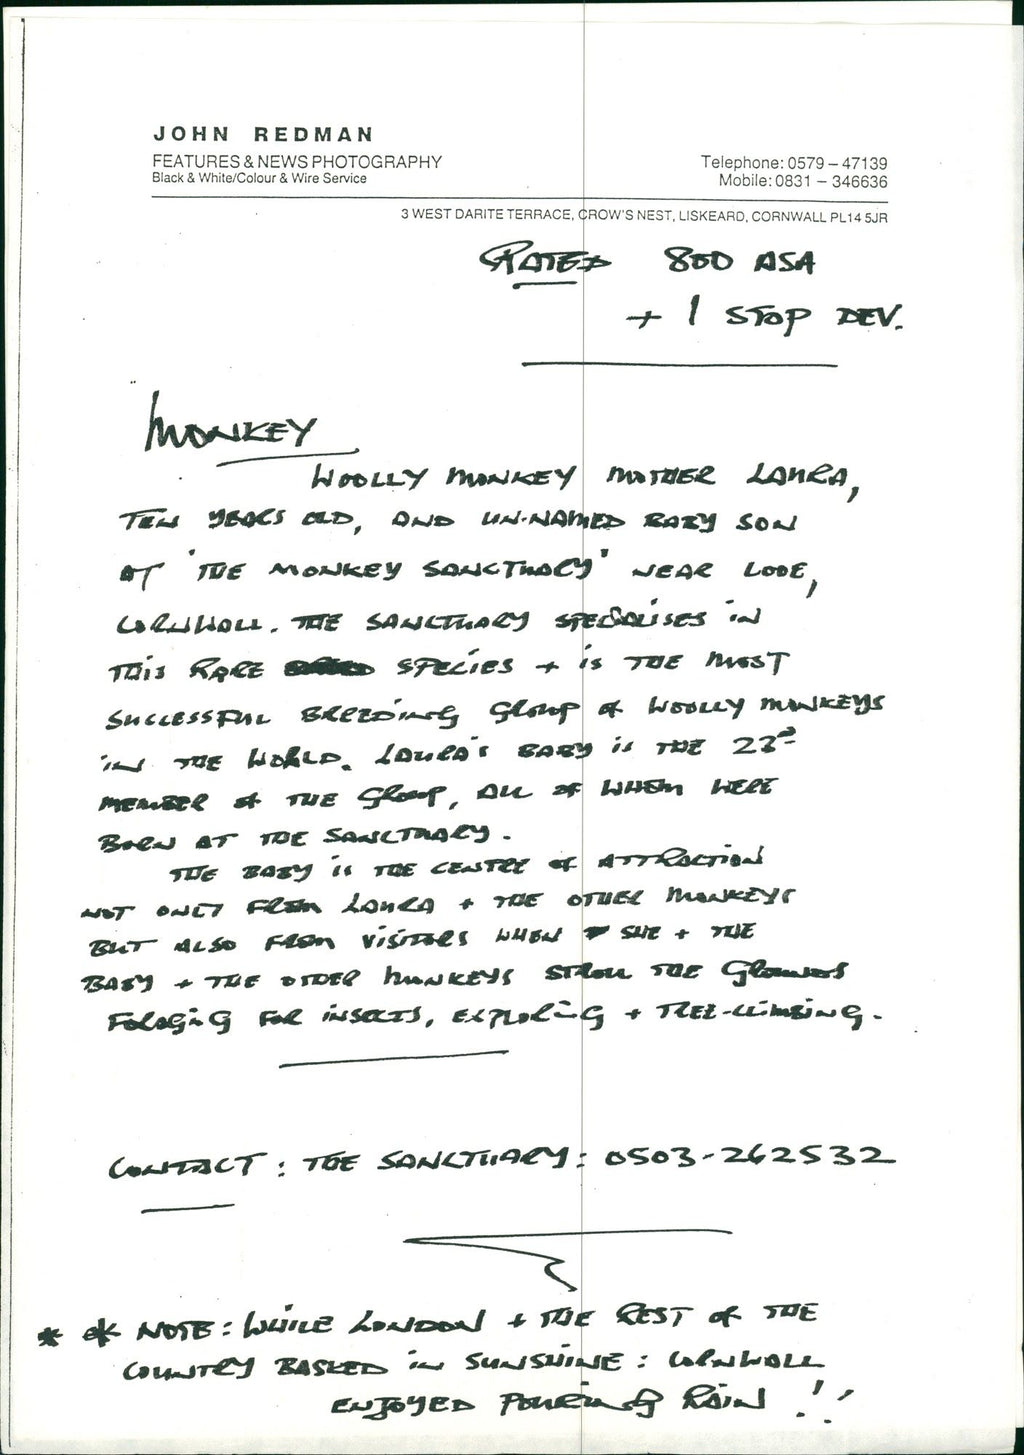 JOHN REDMAN
FEATURES & NEWS PHOTOGRAPHY
Black & White/Colour & Wire Service
Telephone: 0579 – 47139
Mobile: 0831 – 346636
3 WEST DARITE TERRACE, CROW'S NEST, LISKEARD, CORNWALL PL14 5JR
RATED 800 ASA
+ 1 STOP DEV.
MONKEY
WOOLLY MONKEY MOTHER LAURA,
TEN YEARS OLD, AND UN-NAMED BABY SON
AT 'THE MONKEY SANCTUARY' NEAR LOOE,
CORNWALL. THE SANCTUARY SPECIALISES IN
THIS RARE SPECIES + IS THE MOST
SUCCESSFUL BREEDING GROUP OF WOOLLY MONKEYS
IN THE WORLD. LAURA'S BABY IS THE
MEMBER OF THE GROUP, ALL OF WHOM WERE
BORN AT THE SANCTUARY.
THE BABY IS THE CENTRE OF ATTRACTION
NOT ONLY FROM LAURA + THE OTHER MONKEYS
BUT ALSO FROM VISITORS WHEN SHE + THE
BABY + THE OTHER MONKEYS STROLL THE GROUNDS
FORAGING FOR INSECTS, EXPLORING + TREE-CLIMBING.
CONTACT: THE SANCTUARY: 0503-262532
* * NOTE: WHILE LONDON + THE REST OF THE
COUNTRY BASKED IN SUNSHINE: CORNWALL
ENJOYED POURING RAIN!!